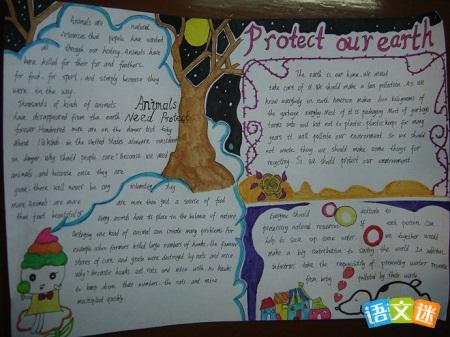 Animals are natural
resources that people have wasted
all through our history. Animals have
been killed for their fur and feathers,
for food, for sport, and simply because they
were in the way.
Thousands of kinds of animals
have disappeared from the earth
forever. Hundreds more are on the danger list today.
About 170 kinds in the United States alone are considered
in danger. Why should people care? Because we need
animals, and because once they are
gone, there will never be any
Animals are more than just a source of food
Every animals have its place in the balance of nature
Destroying one kind of animal can create many problems
For example when farmers killed large numbers of hawks, the farmers'
stores of corn and grain were destroyed by rats and mice.
Why? Because hawks eat rats and mice with no hawks
to keep down their numbers, the rats and mice
multiplied quickly.
Animals
Need Protect
Protect our earth
The earth is our home. We need
take care of it. We should make a less pollution. As we
know everybody in
garbage Most of it is packaging. Most of garbage
turns into and but not to plastic. plastic keeps for many
years. It will pollute our environment. So we should
not waste thing we should make some things for
recycling. So we should protect our environment.
Everyone should
preserving natural resources. If each person can
help to save up some water, we together would
make a big contribution to saving the world. In addition,
take the responsibility of preventing water resources
from being polluted by there waste.
语文迷